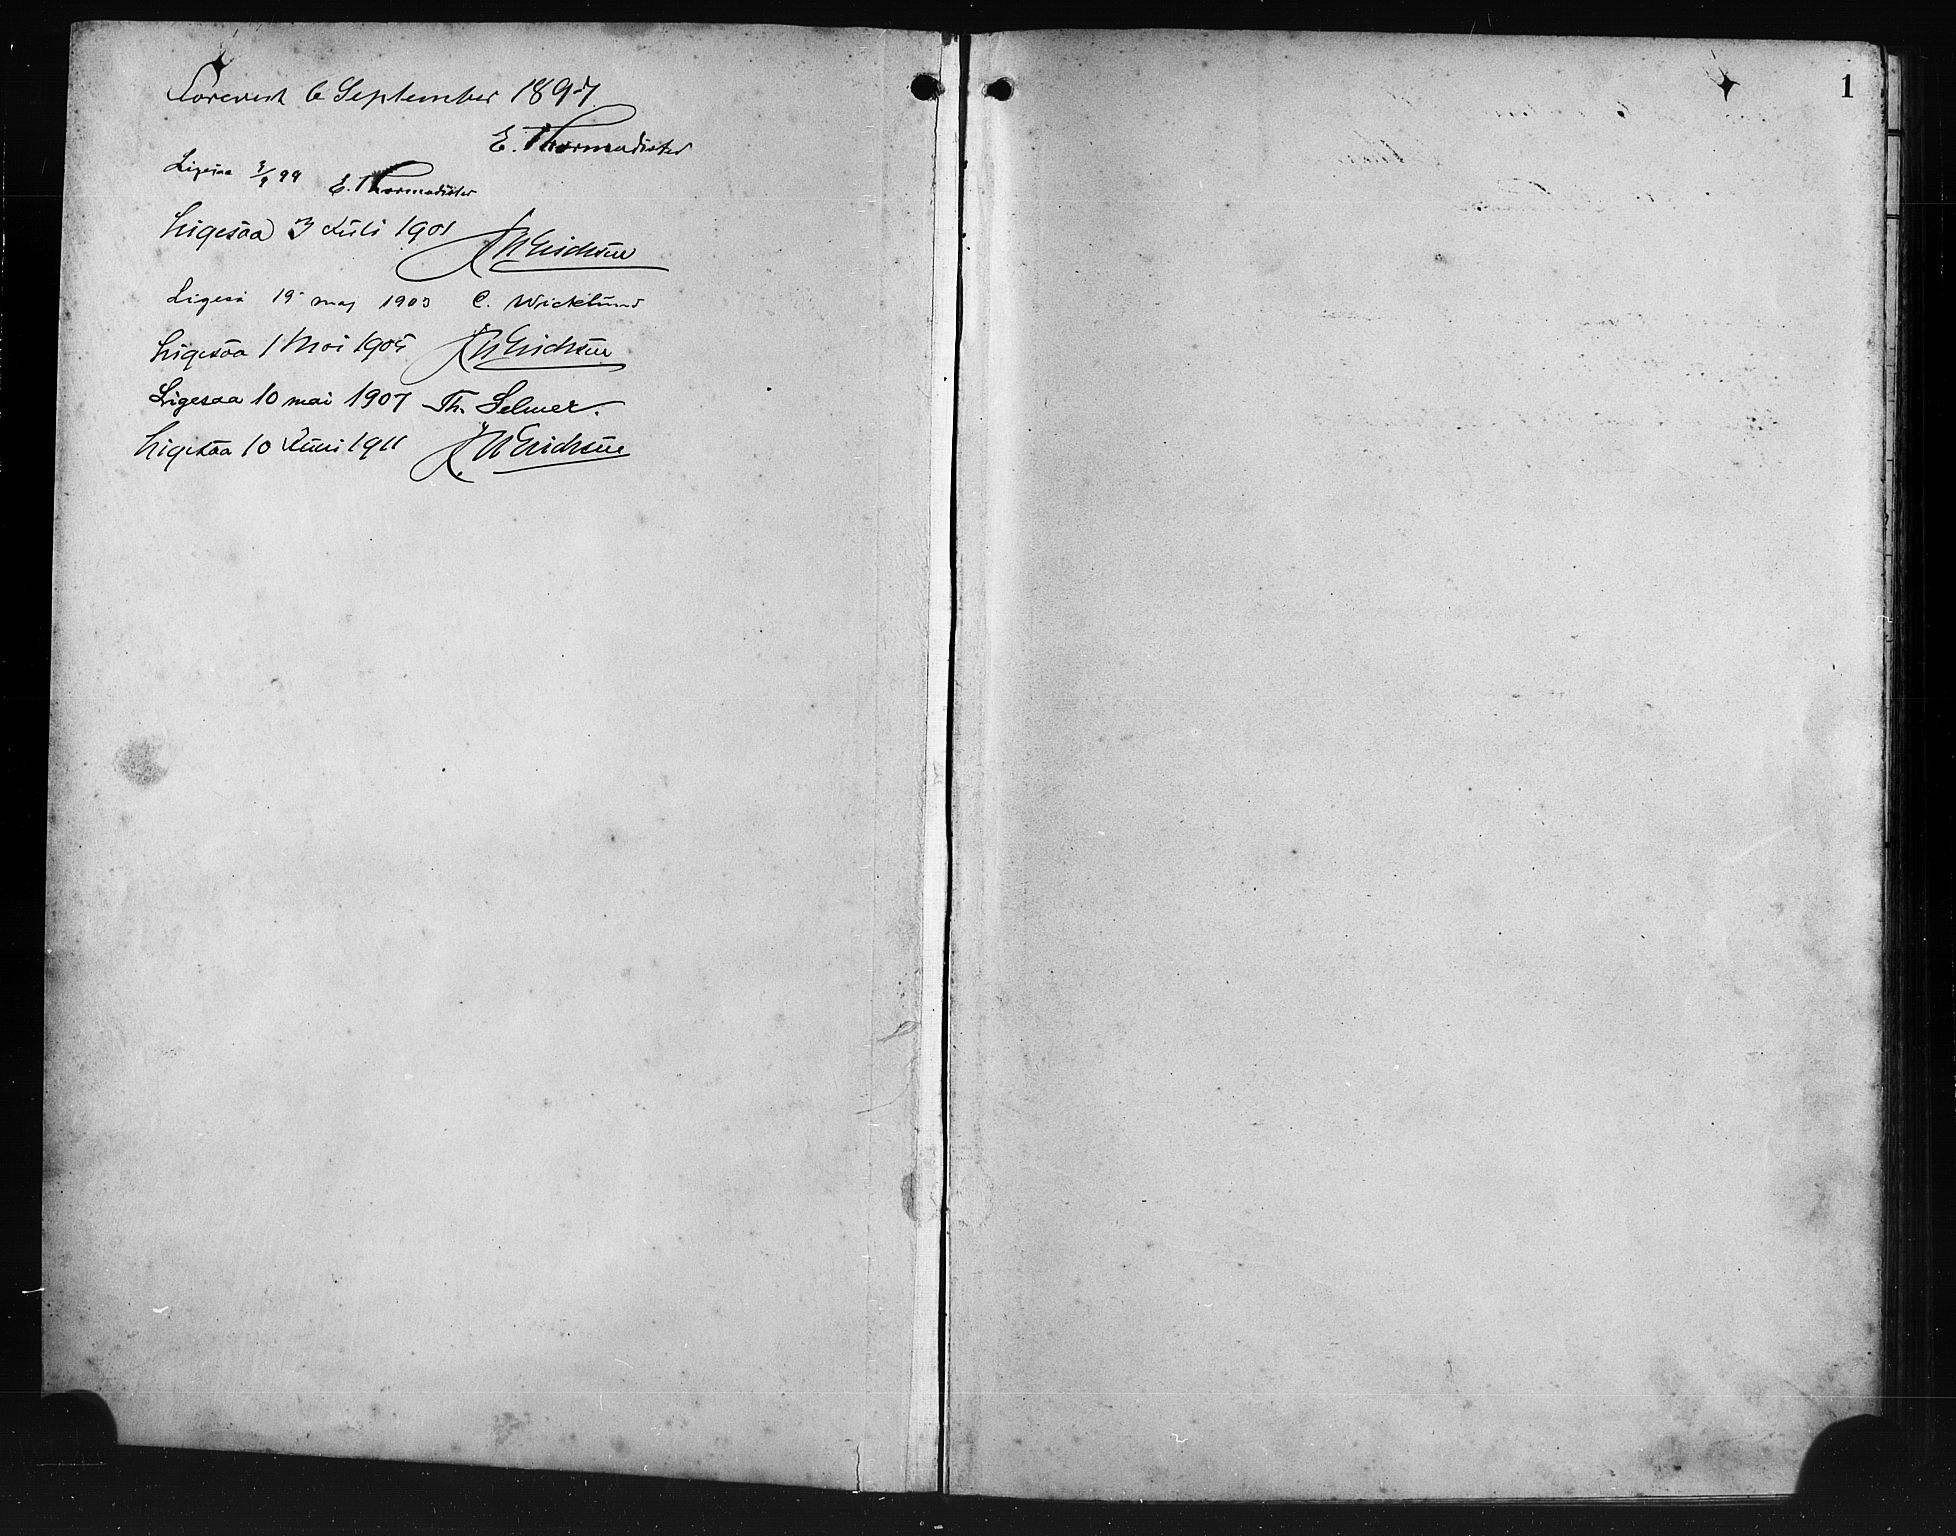 Forevist 6 September 1897.
E. Thormodsæter
Ligesaa 3/9 99 E. Thormodsæter
Ligesaa 3 Juli 1901
Ligesaa 19 maj 1903 C. Wicklund
Ligesaa 1 Mai 1905
Ligesaa 10 mai 1907 Th. Selmer.
Ligesaa 10 Juni 1911
1